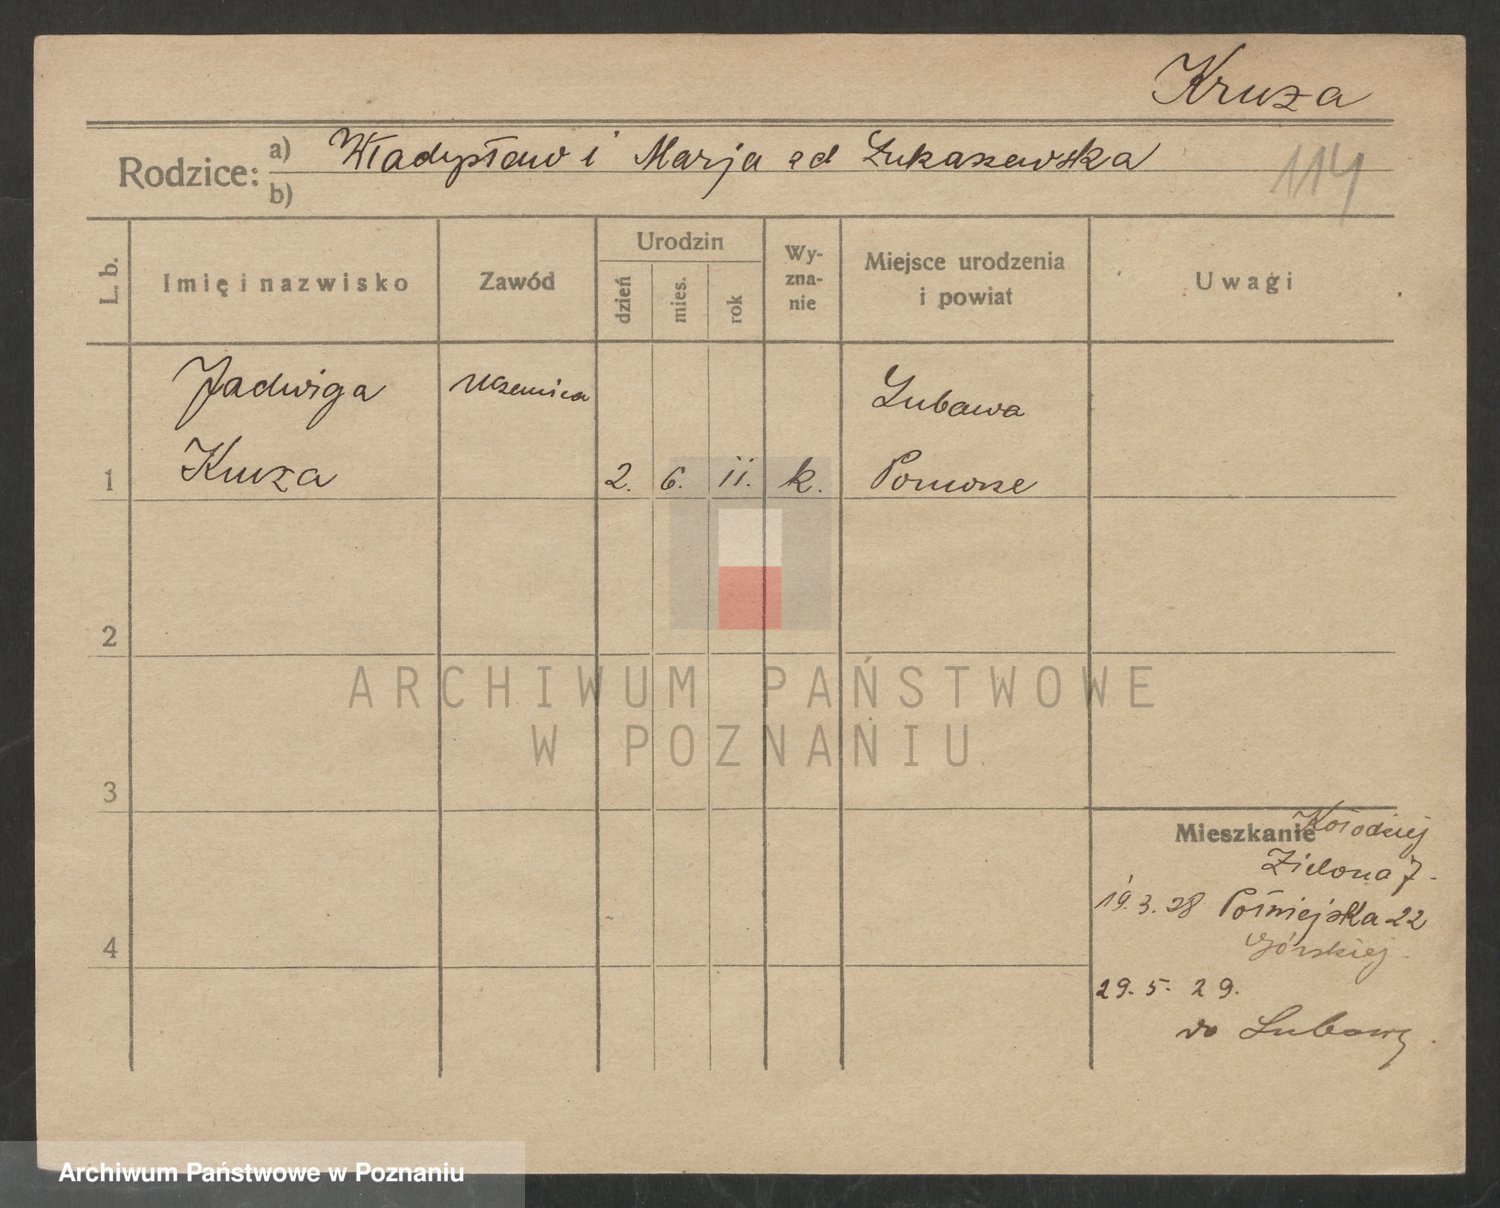 Kruza
Rodzice: a) Władysław i Marja zd Łukaszewska
b)
114
L. b.
Imię i nazwisko
Zawód
Urodzin
dzień
mies.
rok
Wy-
zna-
nie
Miejsce urodzenia
i powiat
Uwagi
Jadwiga uczenica Lubawa
1 Kruza 2. 6. 11. k. Pomorze
2
ARCHIWUM PAŃSTWOWE
W POZNANIU
3
Mieszkanie Kołodziej
Zielona 7.
19.3.28 Późniejska 22
Górskiej.
4
29. 5. 29.
do Lubawy.
Archiwum Państwowe w Poznaniu